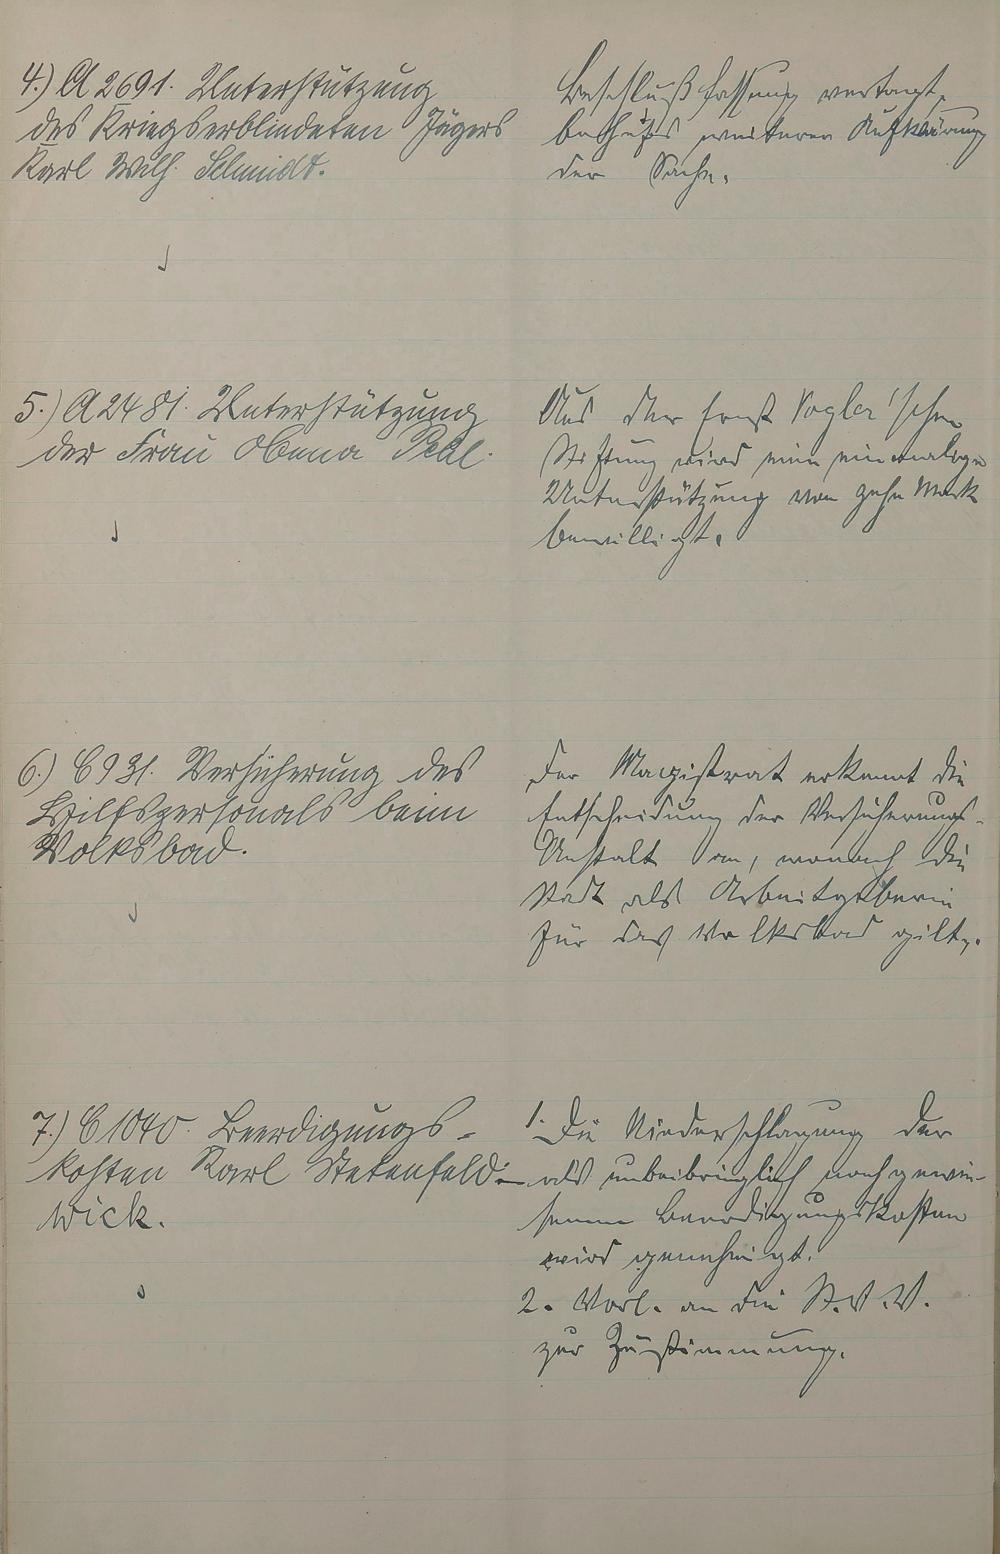 4.) A 2691. Unterstützung
des Kriegserblindeten Jägers
Karl Wilh. Schmidt.
Beschlußfassung vertagt,
behufs weiterer Aufklärung
der Sache.
5.) A 2481. Unterstützung
der Frau Obena Pehl.
Aus der Ernst Vogler'schen
Stiftung wird eine einmalige
Unterstützung von zehn Mark
bewilligt.
6.) C 931. Versicherung des
Hilfspersonals beim
Volksbad.
Der Magistrat erkennt die
Entscheidung der Versicherungs-
Anstalt an, wonach die
Stadt als Arbeitgeberin
für das Volksbad gilt.
7.) C 1040. Beerdigungs-
kosten Karl Stetenfeld-
wick.
1. Die Niederschlagung der
als unbeibringlich nachgewie-
senen Beerdigungskosten
wird genehmigt.
2. Vorl. an die St.V.V.
zur Zustimmung.